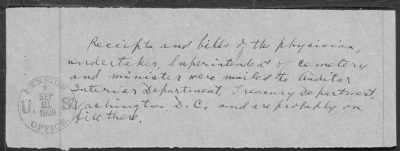 Receipts and bills of the physician,
undertaker, Superintendent of cemetery
and minister were mailed to Auditor
Interior Department, Treasury Department,
Washington D.C. and are probably on
file there.
PENSION
U.S.
SEP
21
1909
OFFICE